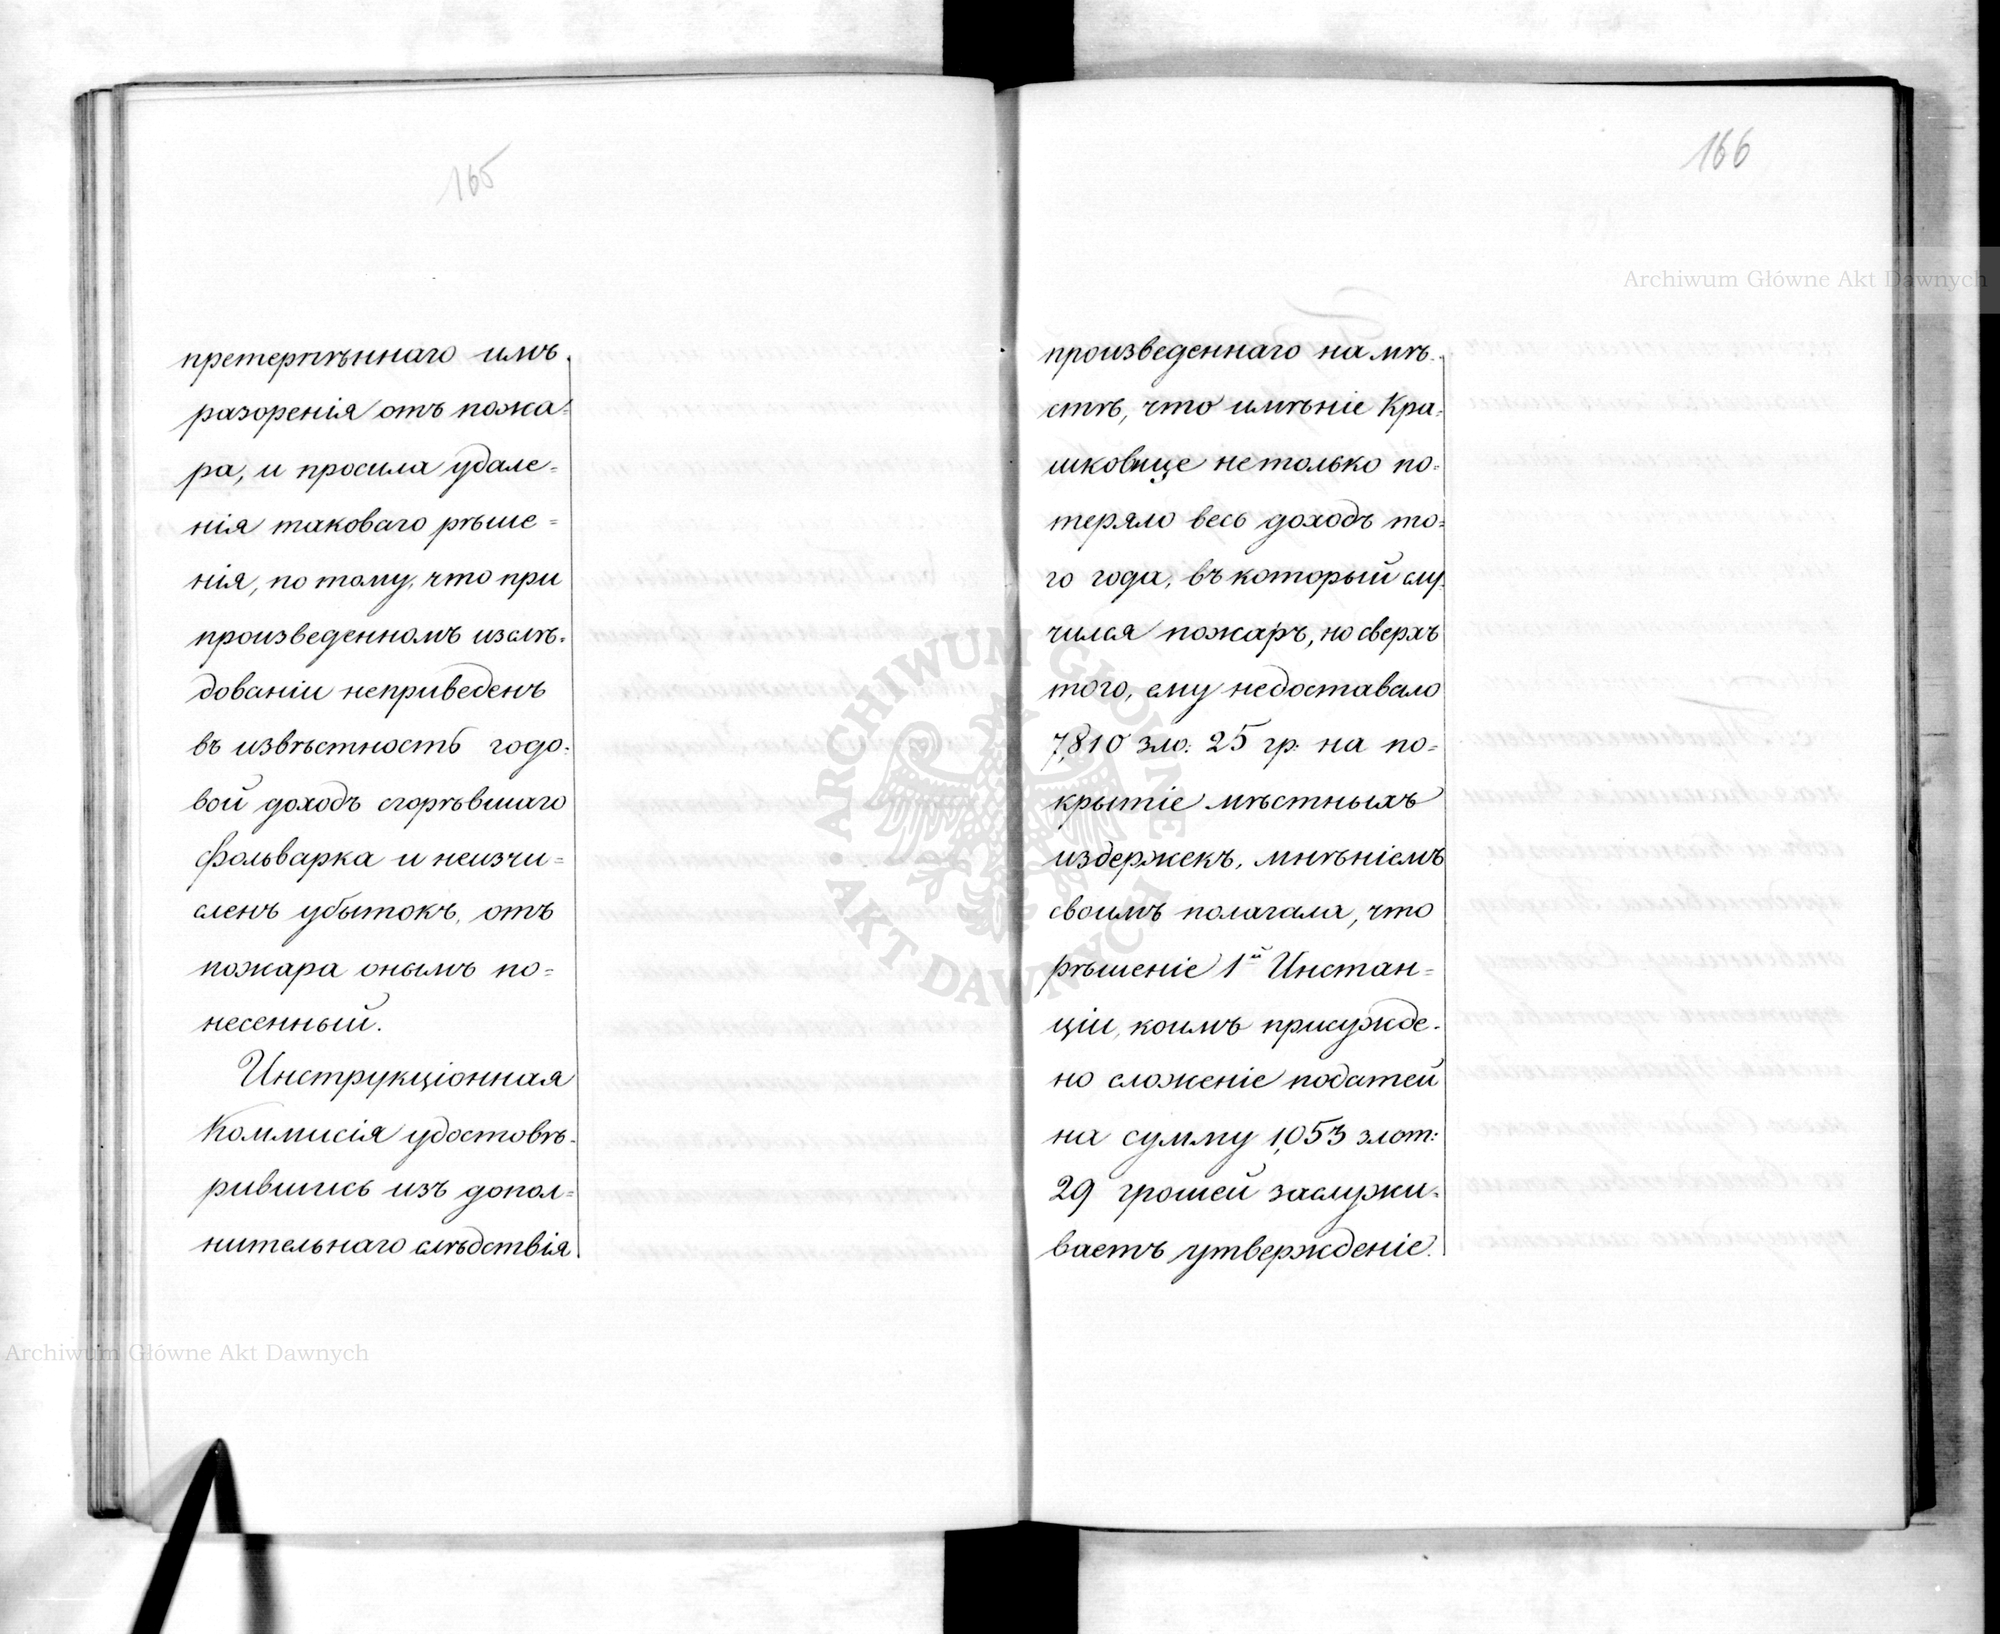 165
претерпѣннаго имъ
разоренія отъ пожа=
ра, и просила удале=
нія таковаго рѣше=
нія, по тому, что при
произведенномъ изслѣ=
дованіи неприведенъ
въ извѣстность годо=
вой доходъ сгорѣвшаго
фольварка и неизчи=
сленъ убытокъ, отъ
пожара онымъ по=
несенный.
Инструкціонная
Коммисія удостовѣ=
рившись изъ допол=
нительнаго слѣдствія
166
произведеннаго на мѣ=
стѣ, что имѣніе Кра=
шковице не только по=
теряло весь доходъ то=
го года, въ который слу=
чился пожаръ, но сверхъ
того, ему недоставало
7,810 зло: 25 гр: на по=
крытіе мѣстныхъ
издержекъ, мнѣніемъ
своимъ полагала, что
рѣшеніе 1й Инстан=
ціи, коимъ присужде=
но сложеніе податей
на сумму 1,053 злот:
29 грошей заслужи=
ваетъ утвержденіе.
Archiwum Główne Akt Dawnych
ARCHIWUM GŁÓWNE
AKT DAWNYCH
Archiwum Główne Akt Dawnych